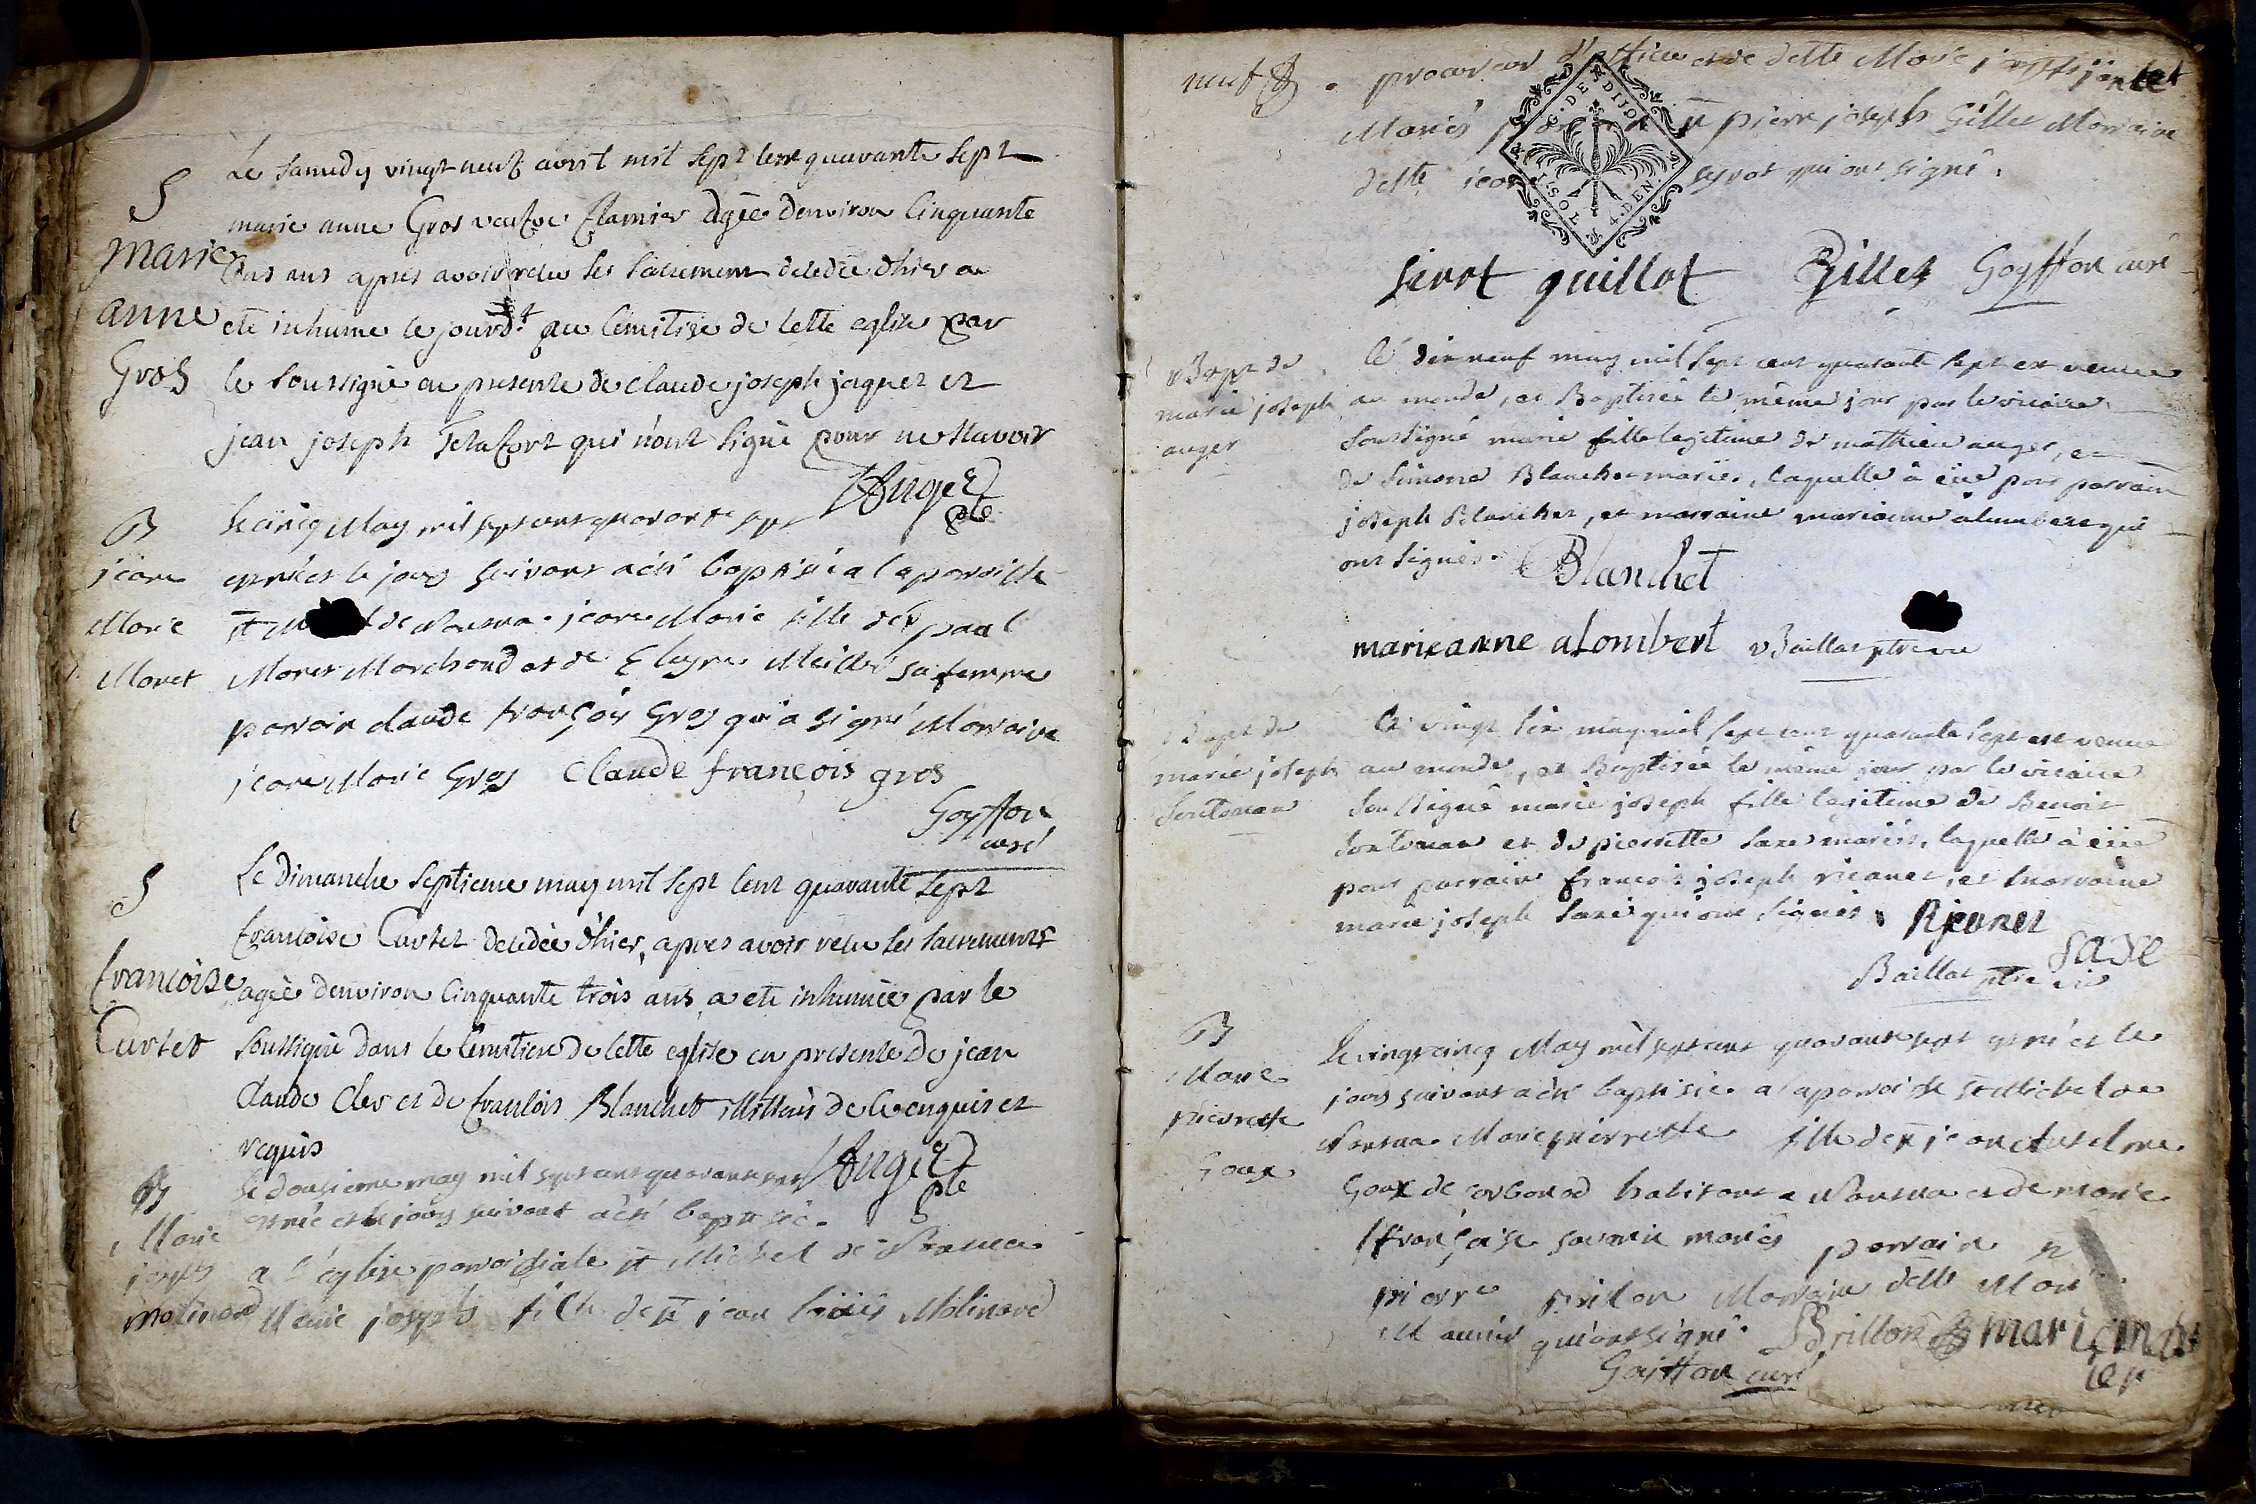 S
Marie
anne
Gros
Le samedy vingt neuf avril mil sept cent quarante sept
marie anne Gros veufve flamier agée denviron Cinquante
Cinq ans apres avoir reçu les sacrement decedée dhier a
eté inhume le jourd. au Cémitire de cette eglise par
le soussigné en presence de claude joseph jaquet et
jean joseph qui n'ont signé pour ne sçavoir
Auger
ptre
B
jeane
Marie
Moret
Le cinq May mil sept cent quarante sept
est née et le jour suivant a été baptisée a la paroisse
st de Nantua jeane Marie fille de sr paul
Moret Marchand et de sa femme
parrain claude françois Gros qui a signé Marraine
jeane Marie Gros Claude françois gros
Goyffon
curé
S
francoise
Cartet
Le Dimanche septieme may mil sept cent quarante sept
francoise Cartet decedée d'hier, apres avoir reçu les sacrements
agée denviron Cinquante trois ans a eté inhumée par le
soussigné dans le Cemitiere de cette eglise en presence de jean
Claude Cler et de francois Blanchet illitterés de ce enquis et
requis
Auger
ptre
B
Marie
joseph
Molinard
Le douzieme may mil sept cent quarante sept
est née et le jour suivant a été baptisée
a l'église paroissiale st Michel de Nantua
Marie joseph fille de sr jean Molinard
neuf procureur d'office et de delle Marie
Mariés sr pierre joseph Gillet Marraine
delle syrot qui ont signé.
G. DE DIJON
SOL 4. DEN.
Sirot guillot Gillet Goyffon curé
Bapt de
marie joseph
auger
le dix neuf may mil sept cent quarante sept est venue
au monde, et Baptisée le même jour par le vicaire
soussigné marie fille legitime de mathieu auger, et
de Simone Blanchet mariés, laquelle à eüe pour parrain
joseph Blanchet, et marraine marianne alombert qui
ont signés.
Blanchet
marieanne aLombert Baillat ptre vic
Bapt de
marie joseph
Le vingt six may mil sept cent quarante sept est venue
au monde, et Baptisée le même jour par le vicaire
soussigné marie joseph fille legitime de Benoit
et de pierrette Saxe mariés, laquelle à eüe
pour parrain francois joseph et marraine
marie joseph Saxe qui ont signés.
Saxe
Baillat ptre vic
B
Marie
pierrette
Goux
Le vingt cinq May mil sept cent quarante sept est née et le
jour suivant a été baptisée a la paroisse st Michel de
Nantua Marie pierrette fille de sr jean Anselme
Goux de corbonod habitant a Nantua et de Marie
françoise mariés parrain sr
pierre Marraine delle Marie
qui ont signé. Brillon
Goyffon curé